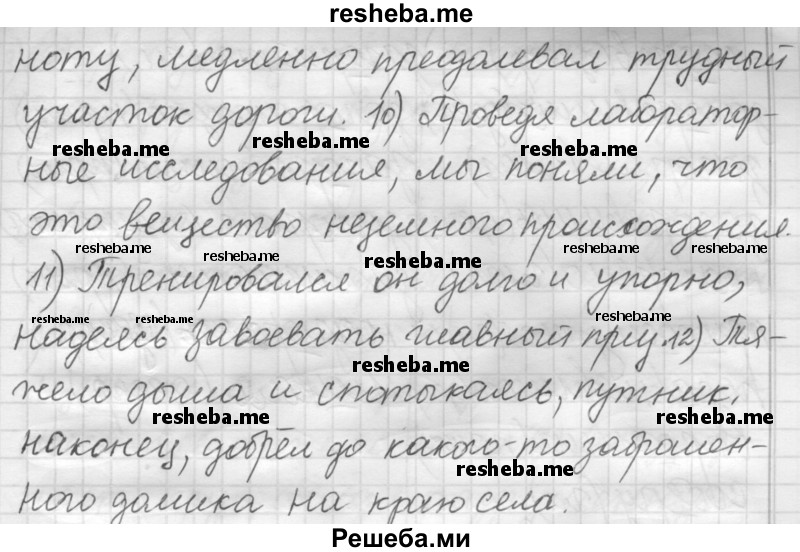 resheba.me
ноту, медленно преодолевал трудный
участок дороги. 10) Проведя лаборатор-
resheba.me resheba.me resheba.me
ные исследования, мы поняли, что
это вещество неземного происхождения.
resheba.me resheba.me resheba.me resheba.me resheba.me
11) Тренировался он долго и упорно,
resheba.me resheba.me resheba.me
надеясь завоевать главный приз 12) Тя-
resheba.me
жело дыша и спотыкаясь, путник,
resheba.me resheba.me
наконец, добрёл до какого-то заброшен-
resheba.me
ного домика на краю села.
Решеба.ми